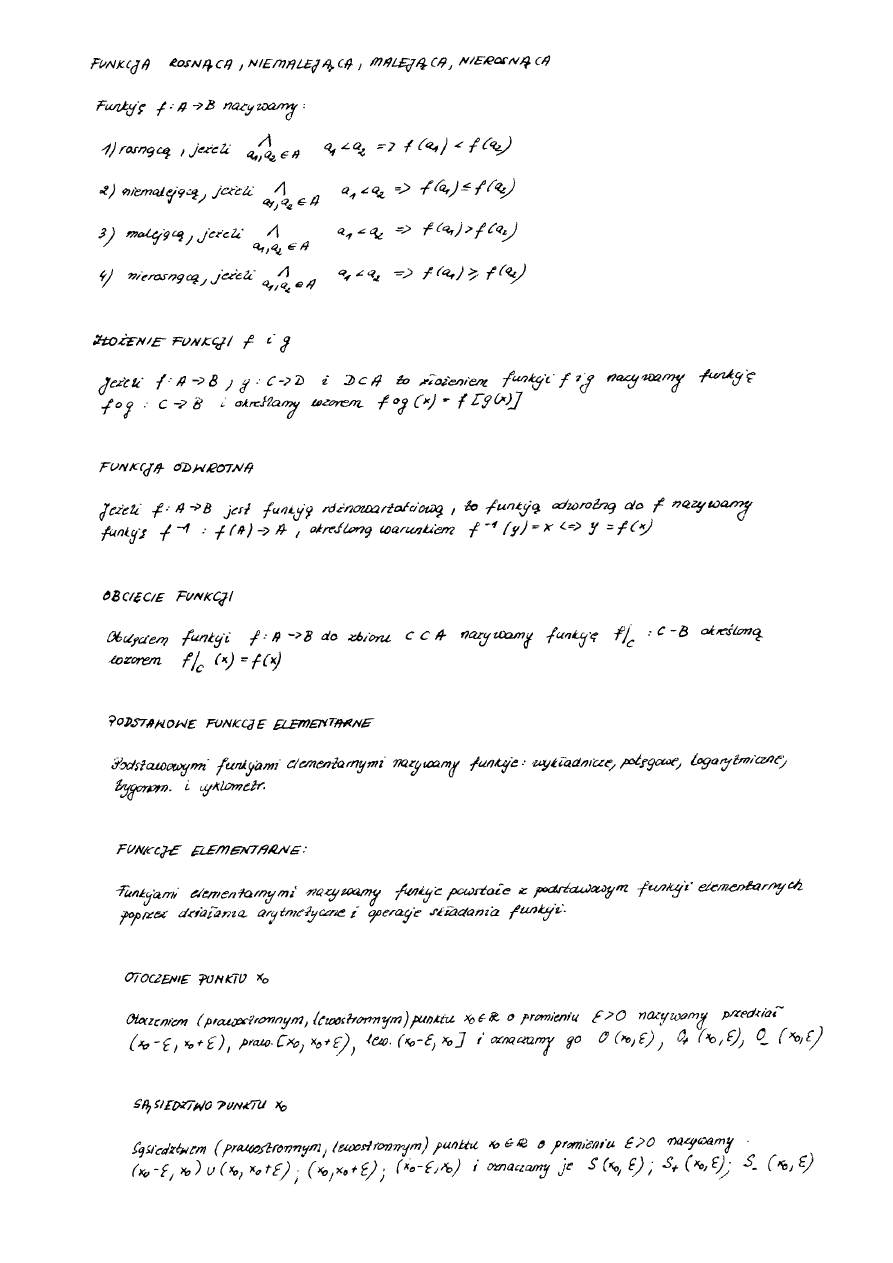 FUNKCJA ROSNĄCA, NIEMALEJĄCA, MALEJĄCA, NIEROSNĄCA
Funkcję f: A → B nazywamy:
1) rosnącą, jeżeli ⋀ a₁,a₂ ∈ A a₁ < a₂ => f(a₁) < f(a₂)
2) niemalejącą, jeżeli ⋀ a₁,a₂ ∈ A a₁ < a₂ => f(a₁) ≤ f(a₂)
3) malejącą, jeżeli ⋀ a₁,a₂ ∈ A a₁ < a₂ => f(a₁) > f(a₂)
4) nierosnącą, jeżeli ⋀ a₁,a₂ ∈ A a₁ < a₂ => f(a₁) ≥ f(a₂)
ZŁOŻENIE FUNKCJI f i g
Jeżeli f: A → B, g: C → D i D ⊂ A to złożeniem funkcji f i g nazywamy funkcję
f∘g : C → B i określamy wzorem f∘g(x) = f[g(x)]
FUNKCJA ODWROTNA
Jeżeli f: A → B jest funkcją różnowartościową, to funkcją odwrotną do f nazywamy
funkcję f⁻¹ : f(A) → A, określoną warunkiem f⁻¹(y) = x <=> y = f(x)
OBCIĘCIE FUNKCJI
Obcięciem funkcji f: A → B do zbioru C ⊂ A nazywamy funkcję f|c : C - B określoną
wzorem f|c (x) = f(x)
PODSTAWOWE FUNKCJE ELEMENTARNE
Podstawowymi funkcjami elementarnymi nazywamy funkcje: wykładnicze, potęgowe, logarytmiczne,
trygonom. i cyklometr.
FUNKCJE ELEMENTARNE:
Funkcjami elementarnymi nazywamy funkcje powstałe z podstawowym funkcji elementarnych
poprzez działania arytmetyczne i operacje składania funkcji.
OTOCZENIE PUNKTU x₀
Otoczeniem (prawostronnym, lewostronnym) punktu x₀ ∈ ℝ o promieniu ε > 0 nazywamy przedział
(x₀-ε, x₀+ε), praw. [x₀, x₀+ε), lew. (x₀-ε, x₀] i oznaczamy go O(x₀,ε), O₊(x₀,ε), O₋(x₀,ε)
SĄSIEDZTWO PUNKTU x₀
Sąsiedztwem (prawostronnym, lewostronnym) punktu x₀ ∈ ℝ o promieniu ε > 0 nazywamy
(x₀-ε, x₀) ∪ (x₀, x₀+ε); (x₀, x₀+ε); (x₀-ε, x₀) i oznaczamy je S(x₀, ε); S₊(x₀,ε); S₋(x₀,ε)